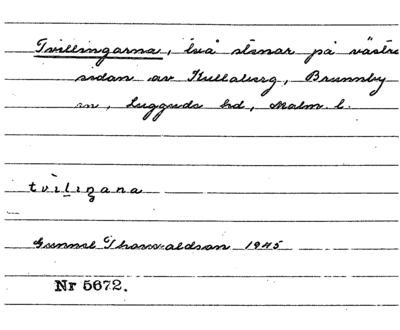 Tvillingarna, två stenar på västra
sidan av Kullaberg, Brunnby
sn, Luggude hd, Malm. l.
tvìliŋana
Gunnel Thorvaldson 1945
Nr 5672.